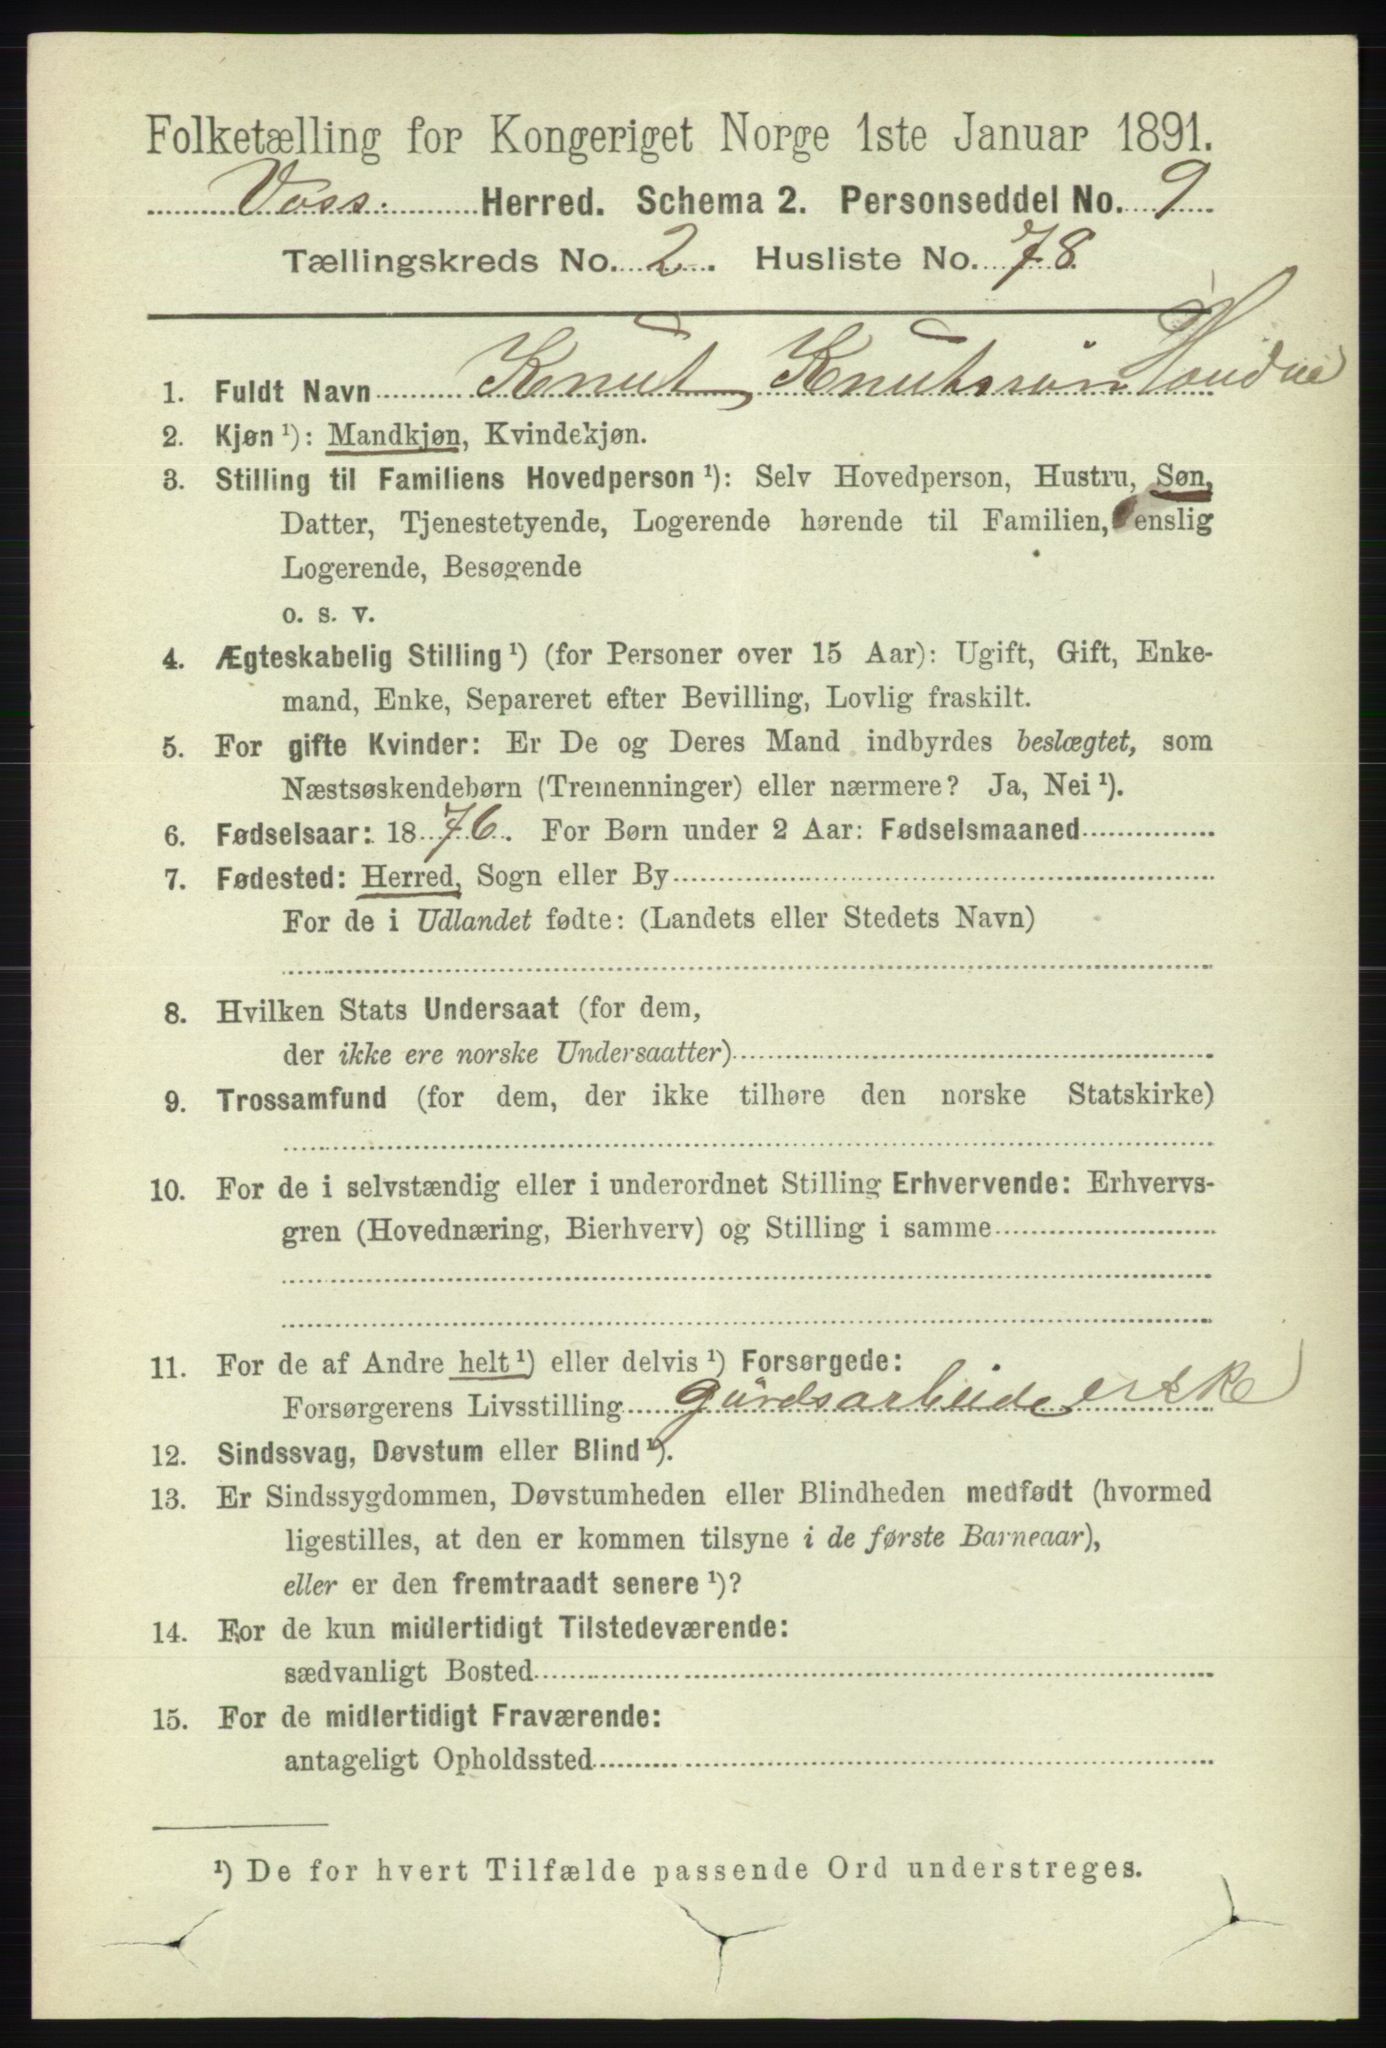 Folketælling for Kongeriget Norge 1ste Januar 1891.
Voss. Herred. Schema 2. Personseddel No. 9
Tællingskreds No. 2. Husliste No. 78
1. Fuldt Navn Knut Knutssøn
2. Kjøn ¹): Mandkjøn, Kvindekjøn.
3. Stilling til Familiens Hovedperson ¹): Selv Hovedperson, Hustru, Søn,
Datter, Tjenestetyende, Logerende hørende til Familien, enslig
Logerende, Besøgende
o. s. v.
4. Ægteskabelig Stilling ¹) (for Personer over 15 Aar): Ugift, Gift, Enke-
mand, Enke, Separeret efter Bevilling, Lovlig fraskilt.
5. For gifte Kvinder: Er De og Deres Mand indbyrdes beslægtet, som
Næstsøskendebørn (Tremenninger) eller nærmere? Ja, Nei ¹).
6. Fødselsaar: 1876. For Børn under 2 Aar: Fødselsmaaned
7. Fødested: Herred, Sogn eller By
For de i Udlandet fødte: (Landets eller Stedets Navn)
8. Hvilken Stats Undersaat (for dem,
der ikke ere norske Undersaatter)
9. Trossamfund (for dem, der ikke tilhøre den norske Statskirke)
10. For de i selvstændig eller i underordnet Stilling Erhvervende: Erhvervs-
gren (Hovednæring, Bierhverv) og Stilling i samme
11. For de af Andre helt ¹) eller delvis ¹) Forsørgede:
Forsørgerens Livsstilling
12. Sindssvag, Døvstum eller Blind ¹).
13. Er Sindssygdommen, Døvstumheden eller Blindheden medfødt (hvormed
ligestilles, at den er kommen tilsyne i de første Barneaar),
eller er den fremtraadt senere ¹)?
14. For de kun midlertidigt Tilstedeværende:
sædvanligt Bosted
15. For de midlertidigt Fraværende:
antageligt Opholdssted
¹) De for hvert Tilfælde passende Ord understreges.